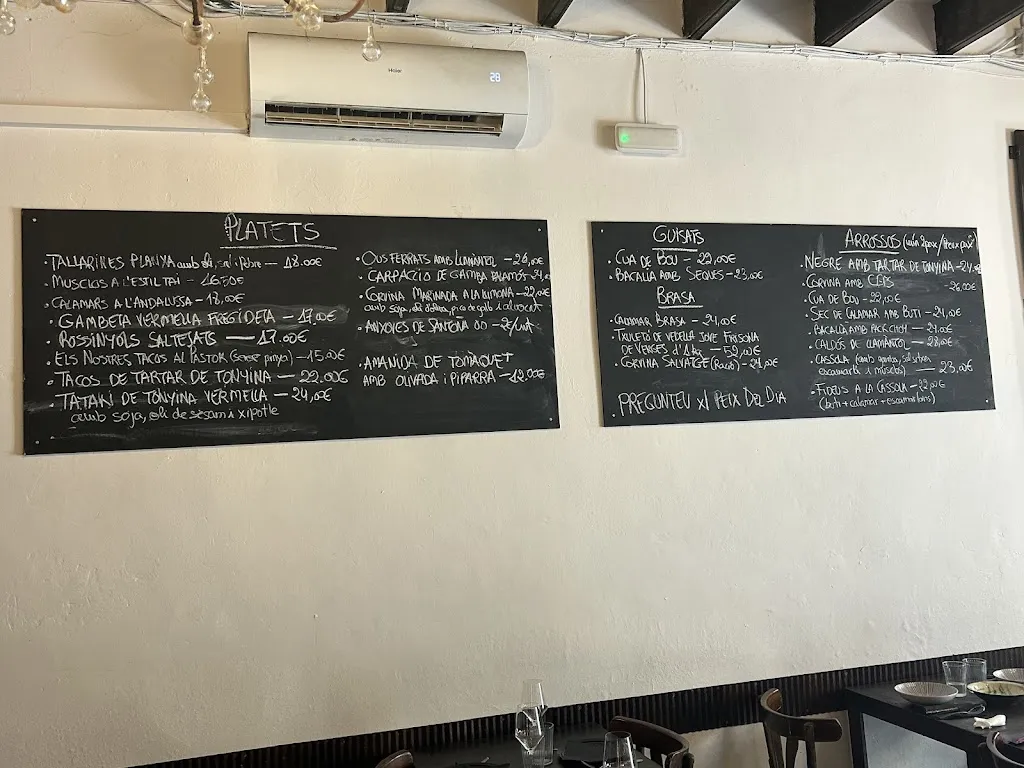 Haier
28
PLATETS
• TALLARINES PLANYA amb oli, sal i pebre — 18.00€
• MUSCLOS A L'ESTIL TAI — 16.50€
• CALAMARS A L'ANDALUSA — 18,00€
• GAMBETA VERMELLA FREGIDETA — 17.00€
• ROSSINYOLS SALTEJATS — 17.00€
• ELS NOSTRES TACOS AL PASTOR (sense pinya) — 15.00€
• TACOS DE TARTAR DE TONYINA — 22.00€
• TATAKI DE TONYINA VERMELLA — 24,00€
amb soja, oli de sèsam i xipotle
• OUS FERRATS AMB LLAMÀNTOL — 26,00€
• CARPACCIO DE GAMBA PALAMÓS
• CORVINA MARINADA A LA LLIMONA — 22,00€
amb soja, oli d'oliva, pico de gallo i alvocat
• ANXOVES DE SANTOÑA 00 — 2€/unt
• AMANIDA DE TOMAQUET
AMB OLIVADA i PIPARRA — 12.00€
GUISATS
• CUA DE BOU — 22,00€
• BACALLÀ AMB SEQUES — 23,00€
BRASA
• CALAMAR BRASA — 24,00€
• TXULETO DE VEDELLA JOVE FRISONA
DE VENGES d'1kg — 52,00€
• CORVINA SALVATGE (Ració) — 24,00€
PREGUNTEU x/ PEIX DEL DIA
ARROSSOS (mín 2pax/Preu pax)
• NEGRE AMB TARTAR DE TONYINA — 24.00€
• CORVINA AMB CEPS — 26,00€
• CUA DE BOU — 22,00€
• SEC DE CALAMAR AMB BOTI — 21,00€
• BACALLÀ AMB PACK CHOY — 24.00€
• CALDÓS DE LLAMÀNTOL — 28,00€
• CASSOLA (amb gamba, salsitxes
escamarlà i musclos) — 23,00€
• FIDEUS A LA CASSOLA — 22,00€
(boti + calamar + escamarlans)